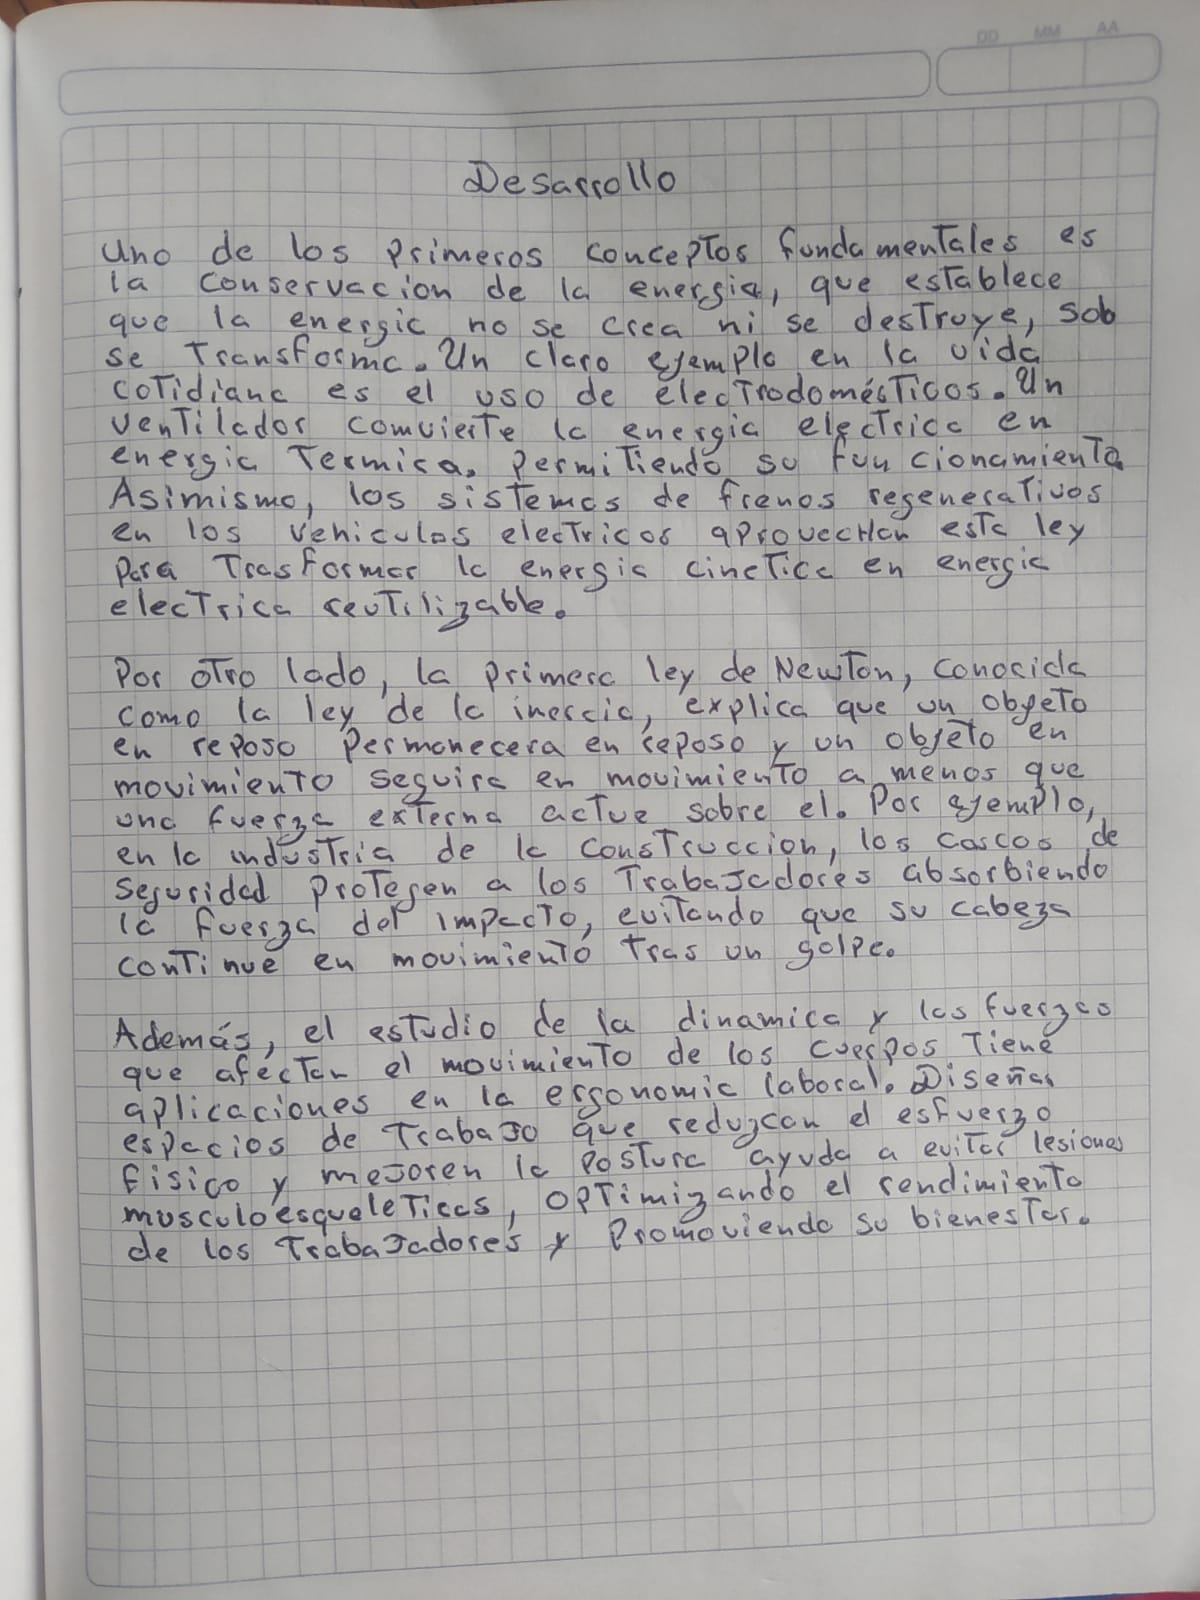 DD MM AA
Desarrollo
Uno de los primeros conceptos fundamentales es
la conservacion de la energia, que establece
que la energia no se crea ni se destruye, solo
se transforma. Un claro ejemplo en la vida
cotidiana es el uso de electrodomésticos. Un
ventilador comvierte la energia electrica en
energia termica, permitiendo su funcionamiento.
Asimismo, los sistemas de frenos regenerativos
en los vehiculos electricos aprovechan esta ley
para trasformar la energia cinetica en energia
electrica reutilizable.
Por otro lado, la primera ley de Newton, conocida
como la ley de la inercia, explica que un objeto
en reposo permanecera en reposo y un objeto en
movimiento seguira en movimiento a menos que
una fuerza externa actue sobre el. Por ejemplo,
en la industria de la construccion, los cascos de
seguridad protegen a los trabajadores absorbiendo
la fuerza del impacto, evitando que su cabeza
continue en movimiento tras un golpe.
Además, el estudio de la dinamica y las fuerzas
que afectan el movimiento de los cuerpos tiene
aplicaciones en la ergonomia laboral. Diseñar
espacios de trabajo que reduzcan el esfuerzo
fisico y mejoren la postura ayuda a evitar lesiones
musculoesqueleticas, optimizando el rendimiento
de los trabajadores y promoviendo su bienestar.